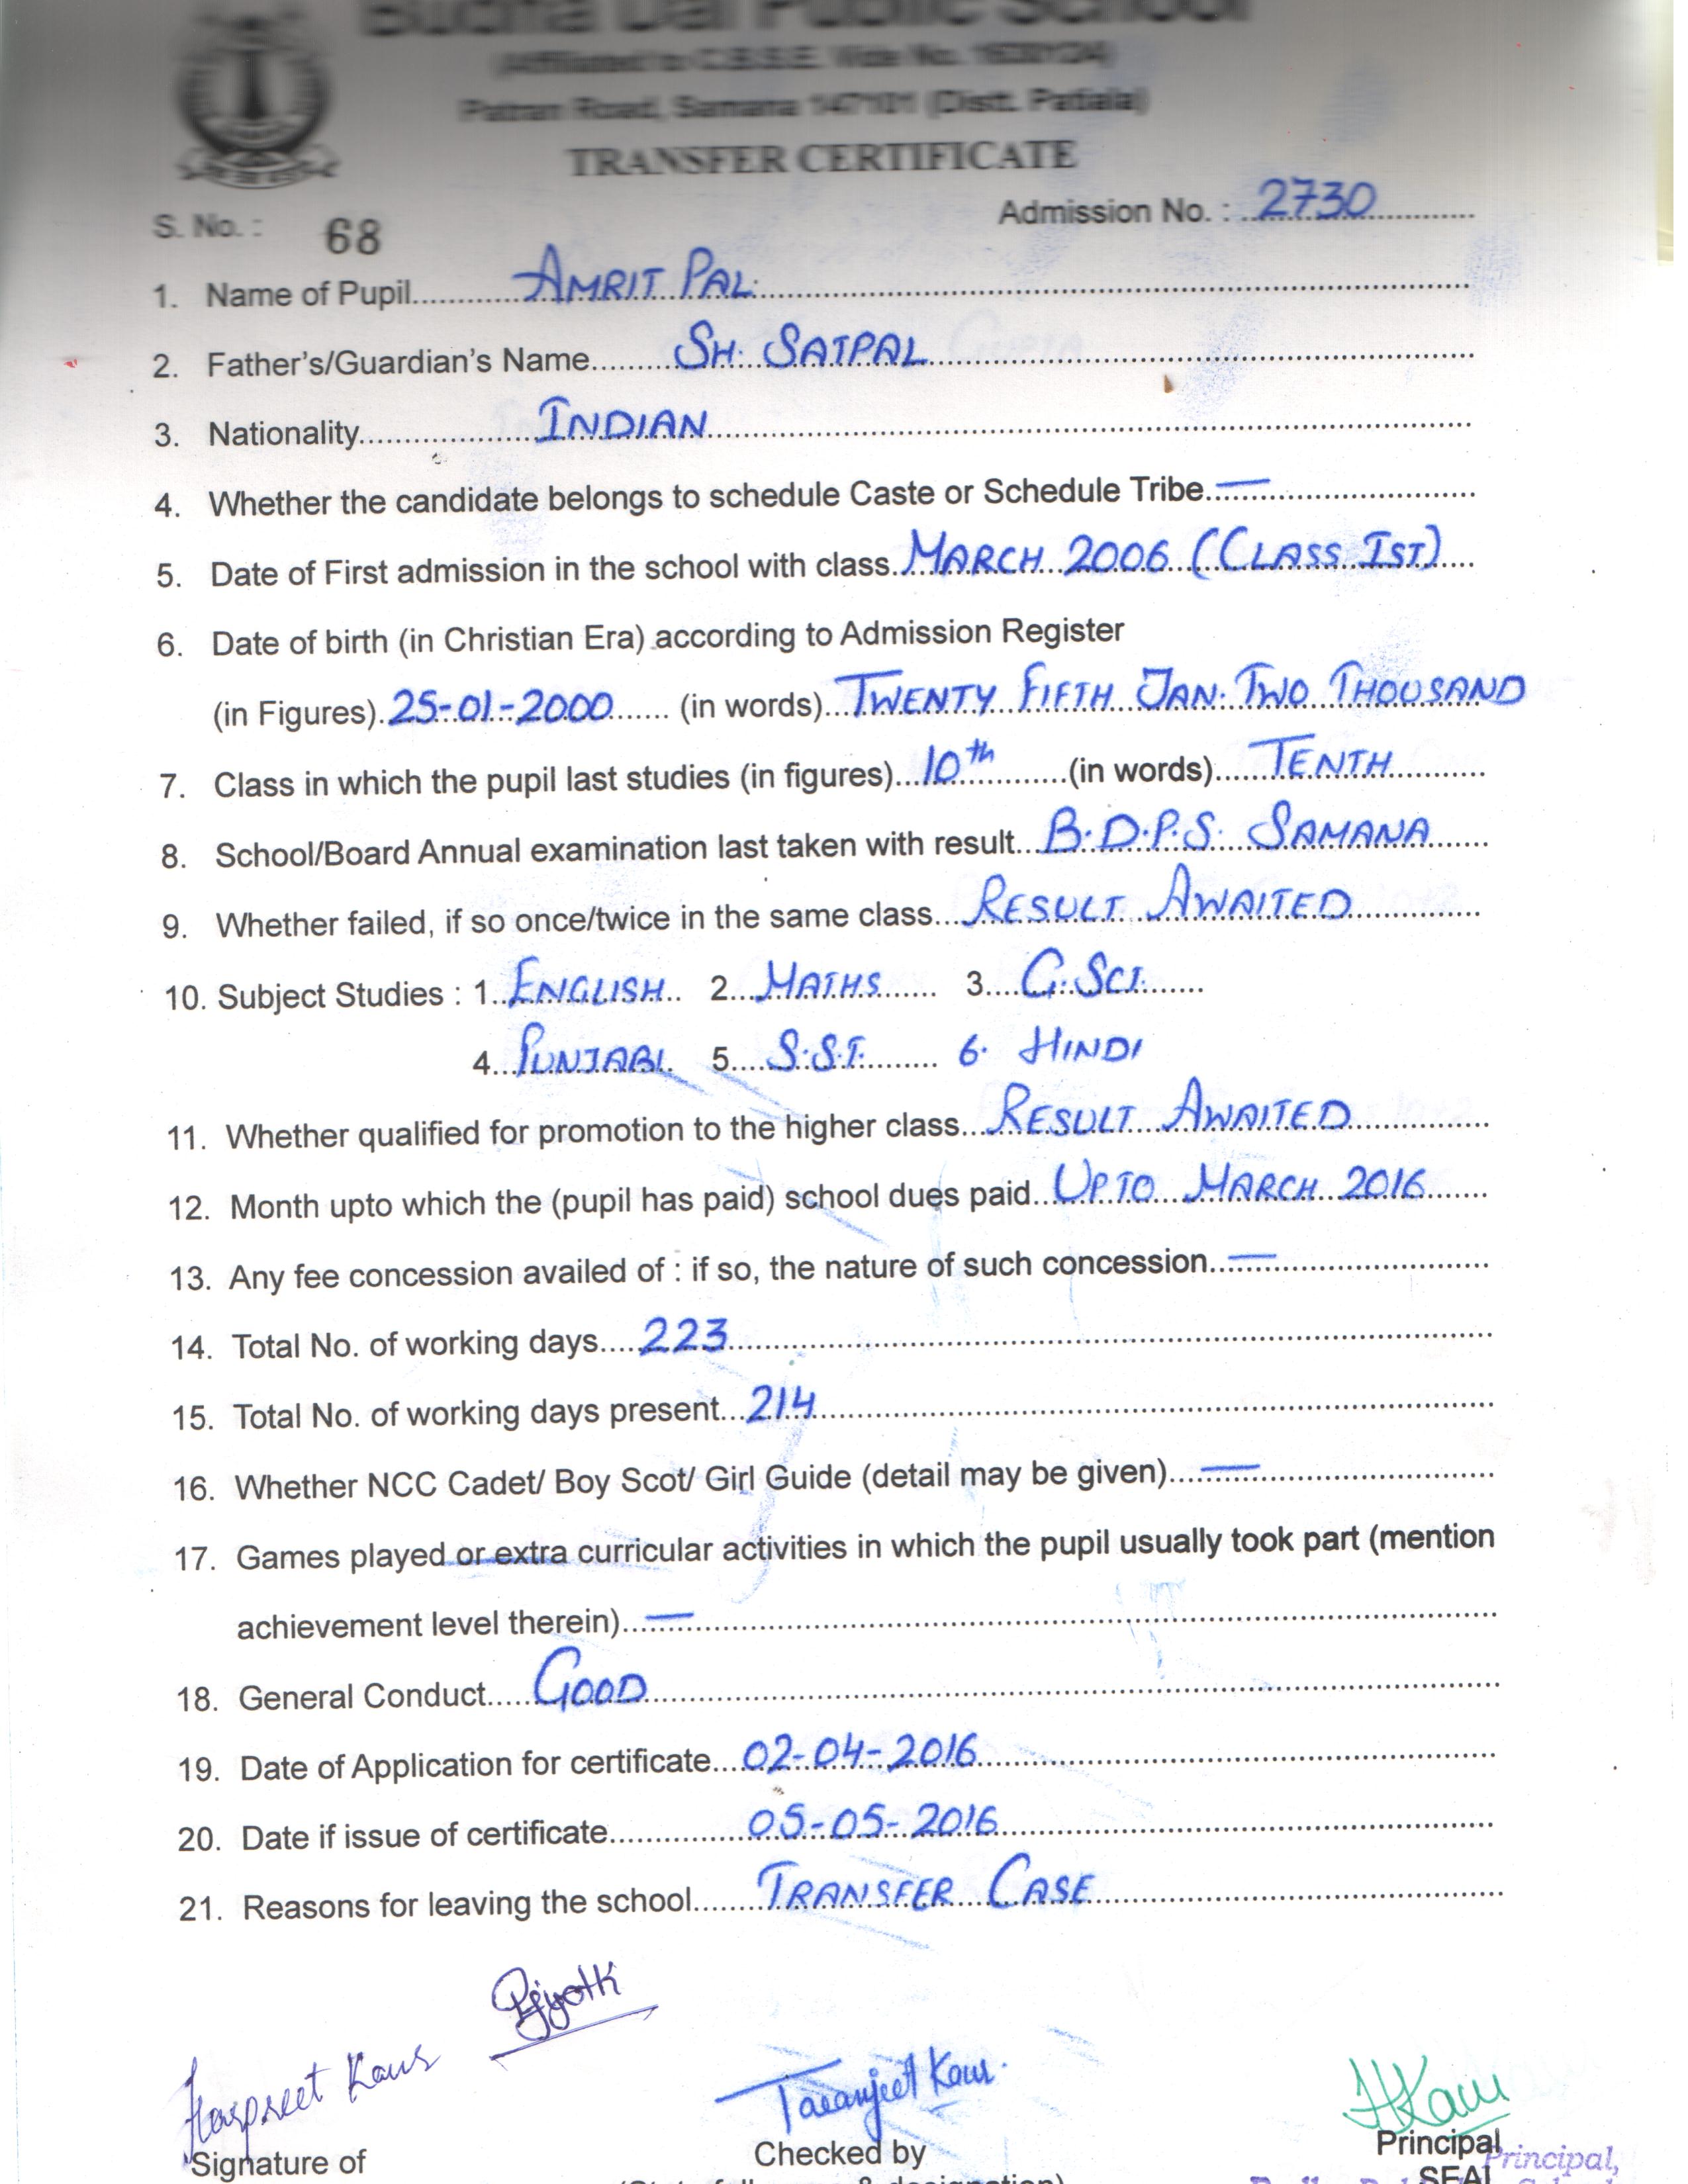 Budha Dal Public School
(Affiliated to C.B.S.E. Vide No. 1630124)
Patran Road, Samana 147101 (Distt. Patiala)
TRANSFER CERTIFICATE
S. No. : 68 Admission No. : 2730
1. Name of Pupil AMRIT PAL
2. Father's/Guardian's Name SH. SATPAL
3. Nationality INDIAN
4. Whether the candidate belongs to schedule Caste or Schedule Tribe —
5. Date of First admission in the school with class MARCH 2006 (CLASS IST)
6. Date of birth (in Christian Era) according to Admission Register
(in Figures) 25-01-2000 (in words) TWENTY FIFTH JAN. TWO THOUSAND
7. Class in which the pupil last studies (in figures) 10th (in words) TENTH
8. School/Board Annual examination last taken with result B.D.P.S. SAMANA
9. Whether failed, if so once/twice in the same class RESULT AWAITED
10. Subject Studies : 1. ENGLISH 2. MATHS 3. G.SCI.
4. PUNJABI 5. S.S.T. 6. HINDI
11. Whether qualified for promotion to the higher class RESULT AWAITED
12. Month upto which the (pupil has paid) school dues paid UPTO MARCH 2016
13. Any fee concession availed of : if so, the nature of such concession —
14. Total No. of working days 223
15. Total No. of working days present 214
16. Whether NCC Cadet/ Boy Scot/ Girl Guide (detail may be given) —
17. Games played or extra curricular activities in which the pupil usually took part (mention
achievement level therein) —
18. General Conduct GOOD
19. Date of Application for certificate 02-04-2016
20. Date if issue of certificate 05-05-2016
21. Reasons for leaving the school TRANSFER CASE
Harpreet Kaur Taranjeet Kaur. HKaur
Signature of Checked by Principal
SEAL Principal,